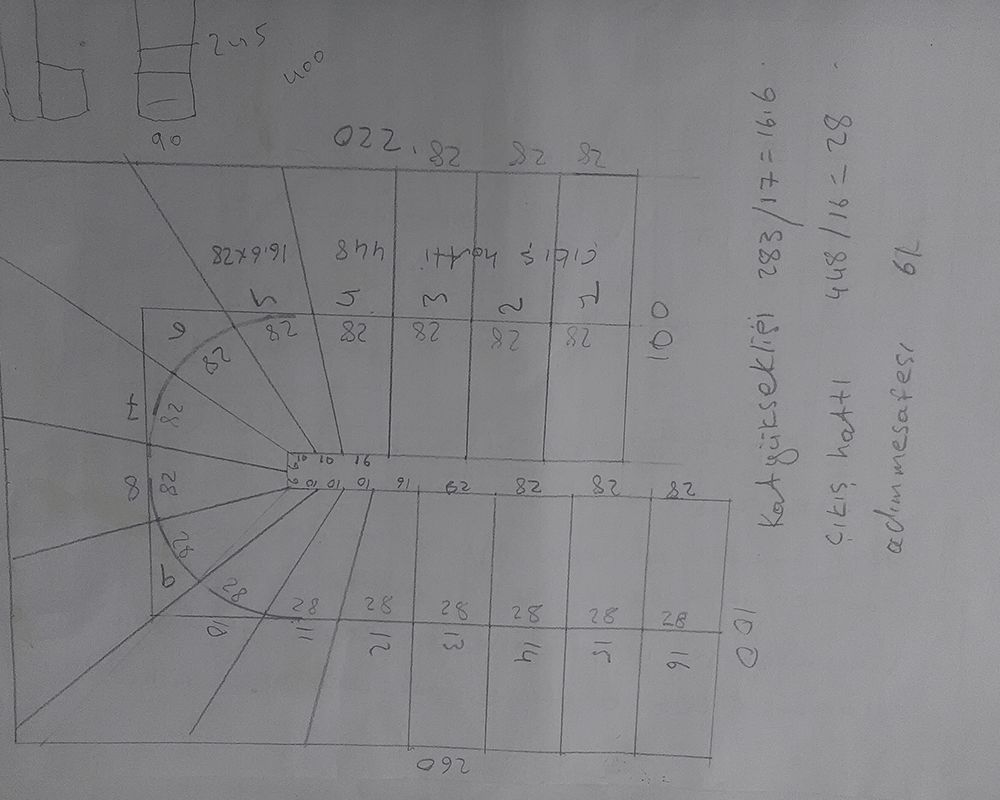 Kat yüksekliği 283/17=16.6
çıkış hattı 448/16=28
adım mesafesi 61
245
400
90
220
28 28 28
16.6x28 448 çıkış hattı
5 4 3 2 1
28 28 28 28 28
100
6 28
7 28
8 28
9 28
10 28
10 10 16
10 10 10 16 29 28 28 28
28 28 28 28 28 28
11 12 13 14 15 16
100
260